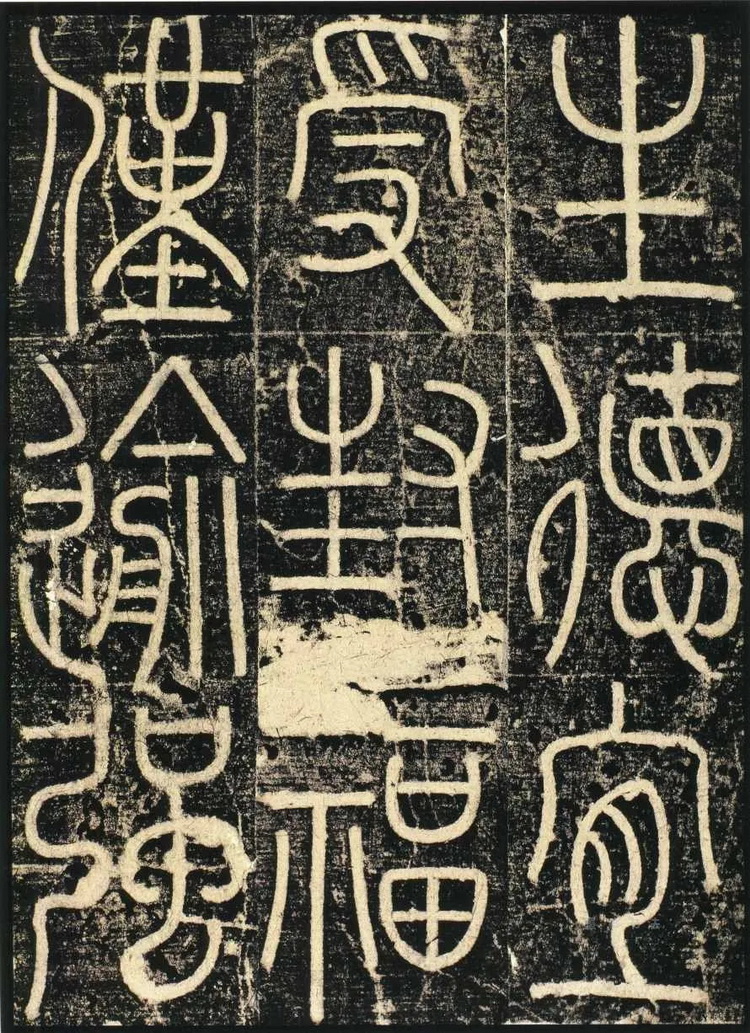 生德宜
受封福
僅逾強